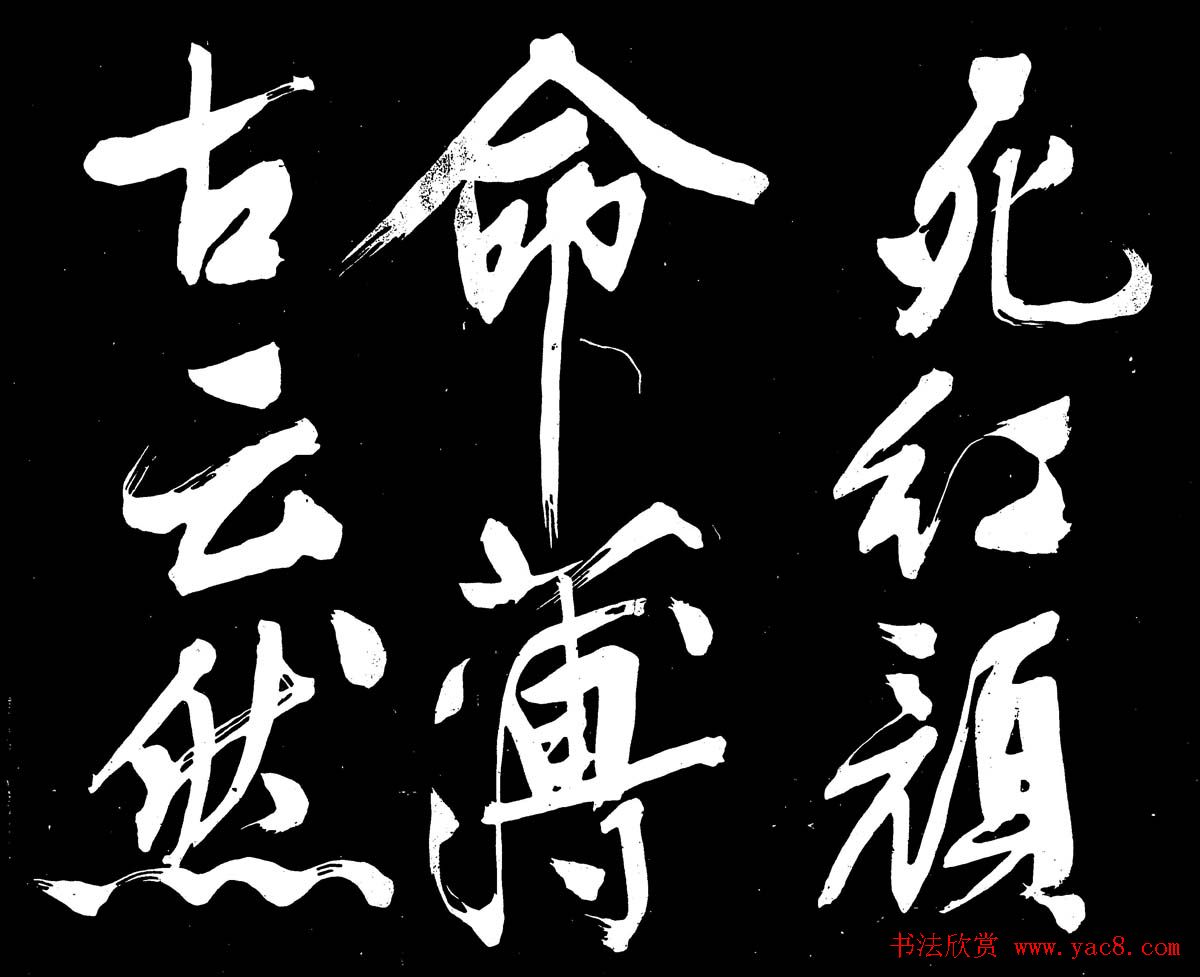 死红颜
命薄
古云然
书法欣赏 www.yac8.com